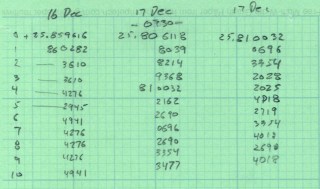 16 Dec 17 Dec 17 Dec
-0730-
0 +25.859616 25.806118 25.810032
1 860482 8039 0696
2 3610 8214 3354
3 2610 9368 2028
4 4276 810032 2025
5 2945 2162 4018
6 4941 2690 2719
7 4276 0696 3354
8 4276 2690 4018
9 4276 3354 2690
10 4941 3477 4018